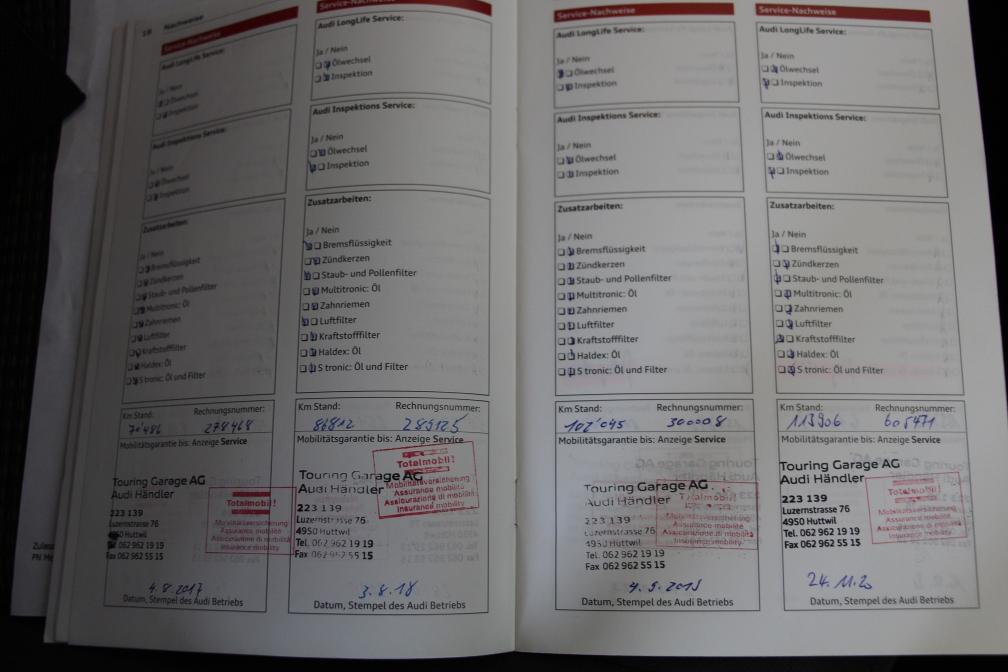 18 Nachweise
Service-Nachweise
Audi LongLife Service:
Ja / Nein
Ölwechsel
Inspektion
Audi Inspektions Service:
Ja / Nein
Ölwechsel
Inspektion
Zusatzarbeiten:
Ja / Nein
Bremsflüssigkeit
Zündkerzen
Staub- und Pollenfilter
Multitronic: Öl
Zahnriemen
Luftfilter
Kraftstofffilter
Haldex: Öl
S tronic: Öl und Filter
Km Stand: Rechnungsnummer:
70'486 278468
Mobilitätsgarantie bis: Anzeige Service
Touring Garage AG
Audi Händler
223 139
Luzernstrasse 76
4950 Huttwil
Tel. 062 962 19 19
Fax 062 962 55 15
Totalmobil!
Mobilitätsversicherung
Assurance mobilité
Assicurazione di mobilità
Insurance mobility
4.8.2017
Datum, Stempel des Audi Betriebs
Service-Nachweise
Audi LongLife Service:
Ja / Nein
Ölwechsel
Inspektion
Audi Inspektions Service:
Ja / Nein
Ölwechsel
Inspektion
Zusatzarbeiten:
Ja / Nein
Bremsflüssigkeit
Zündkerzen
Staub- und Pollenfilter
Multitronic: Öl
Zahnriemen
Luftfilter
Kraftstofffilter
Haldex: Öl
S tronic: Öl und Filter
Km Stand: Rechnungsnummer:
86812 289125
Mobilitätsgarantie bis: Anzeige Service
Touring Garage AG
Audi Händler
223 139
Luzernstrasse 76
4950 Huttwil
Tel. 062 962 19 19
Fax 062 962 55 15
Totalmobil!
Mobilitätsversicherung
Assurance mobilité
Assicurazione di mobilità
Insurance mobility
3.8.18
Datum, Stempel des Audi Betriebs
Service-Nachweise
Audi LongLife Service:
Ja / Nein
Ölwechsel
Inspektion
Audi Inspektions Service:
Ja / Nein
Ölwechsel
Inspektion
Zusatzarbeiten:
Ja / Nein
Bremsflüssigkeit
Zündkerzen
Staub- und Pollenfilter
Multitronic: Öl
Zahnriemen
Luftfilter
Kraftstofffilter
Haldex: Öl
S tronic: Öl und Filter
Km Stand: Rechnungsnummer:
102'045 300008
Mobilitätsgarantie bis: Anzeige Service
Touring Garage AG
Audi Händler
223 139
Luzernstrasse 76
4950 Huttwil
Tel. 062 962 19 19
Fax 062 962 55 15
Totalmobil!
Mobilitätsversicherung
Assurance mobilité
Assicurazione di mobilità
Insurance mobility
Datum, Stempel des Audi Betriebs
Service-Nachweise
Audi LongLife Service:
Ja / Nein
Ölwechsel
Inspektion
Audi Inspektions Service:
Ja / Nein
Ölwechsel
Inspektion
Zusatzarbeiten:
Ja / Nein
Bremsflüssigkeit
Zündkerzen
Staub- und Pollenfilter
Multitronic: Öl
Zahnriemen
Luftfilter
Kraftstofffilter
Haldex: Öl
S tronic: Öl und Filter
Km Stand: Rechnungsnummer:
113906 605471
Mobilitätsgarantie bis: Anzeige Service
Touring Garage AG
Audi Händler
223 139
Luzernstrasse 76
4950 Huttwil
Tel. 062 962 19 19
Fax 062 962 55 15
Totalmobil!
Mobilitätsversicherung
Assurance mobilité
Assicurazione di mobilità
Insurance mobility
24.11.20
Datum, Stempel des Audi Betriebs